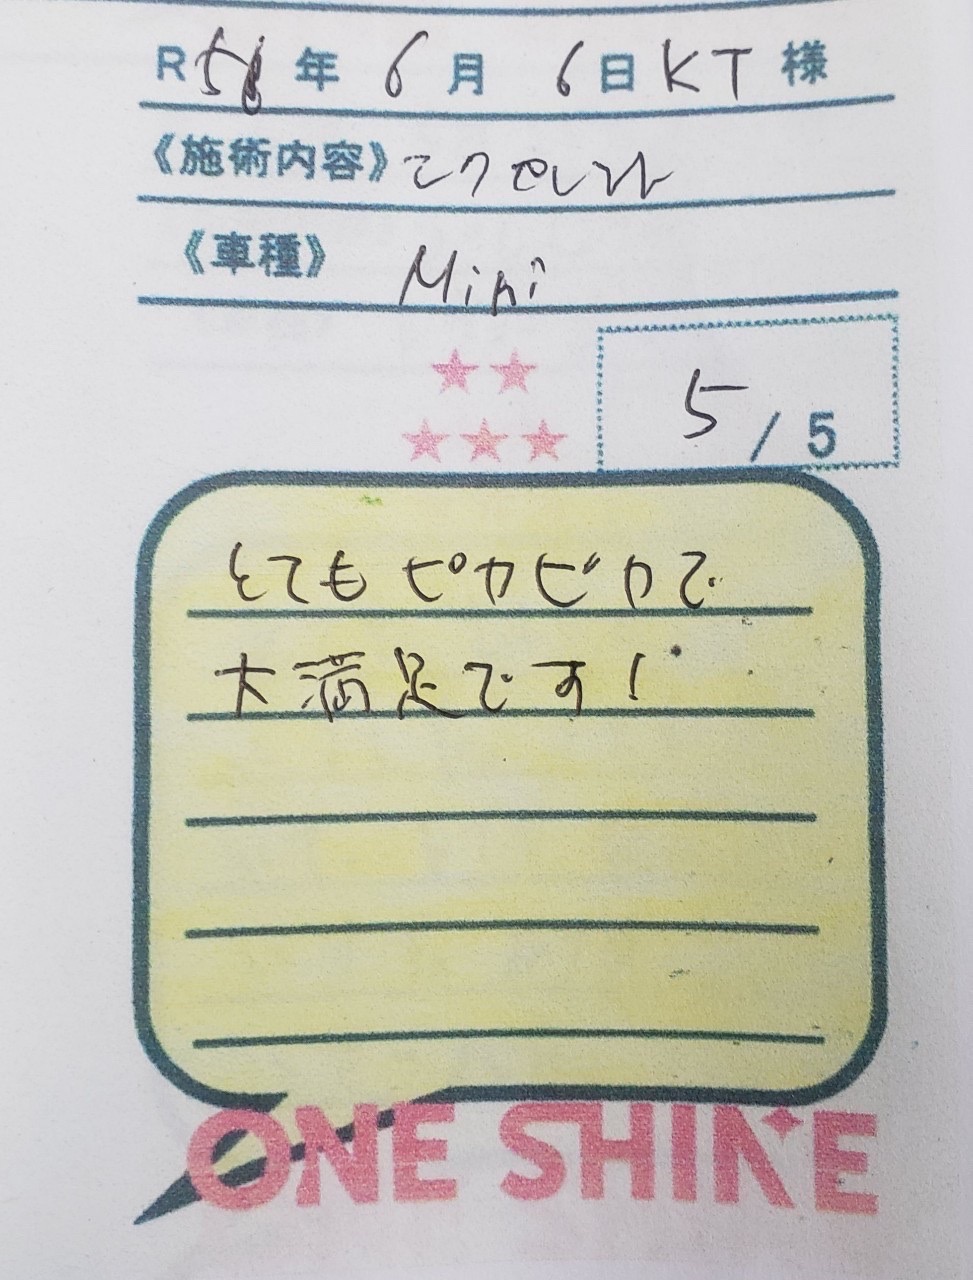 R5年 6月 6日 KT 様
《施術内容》エクセレント
《車種》 Mini
5 / 5
とてもピカピカで
大満足です!
ONE SHINE